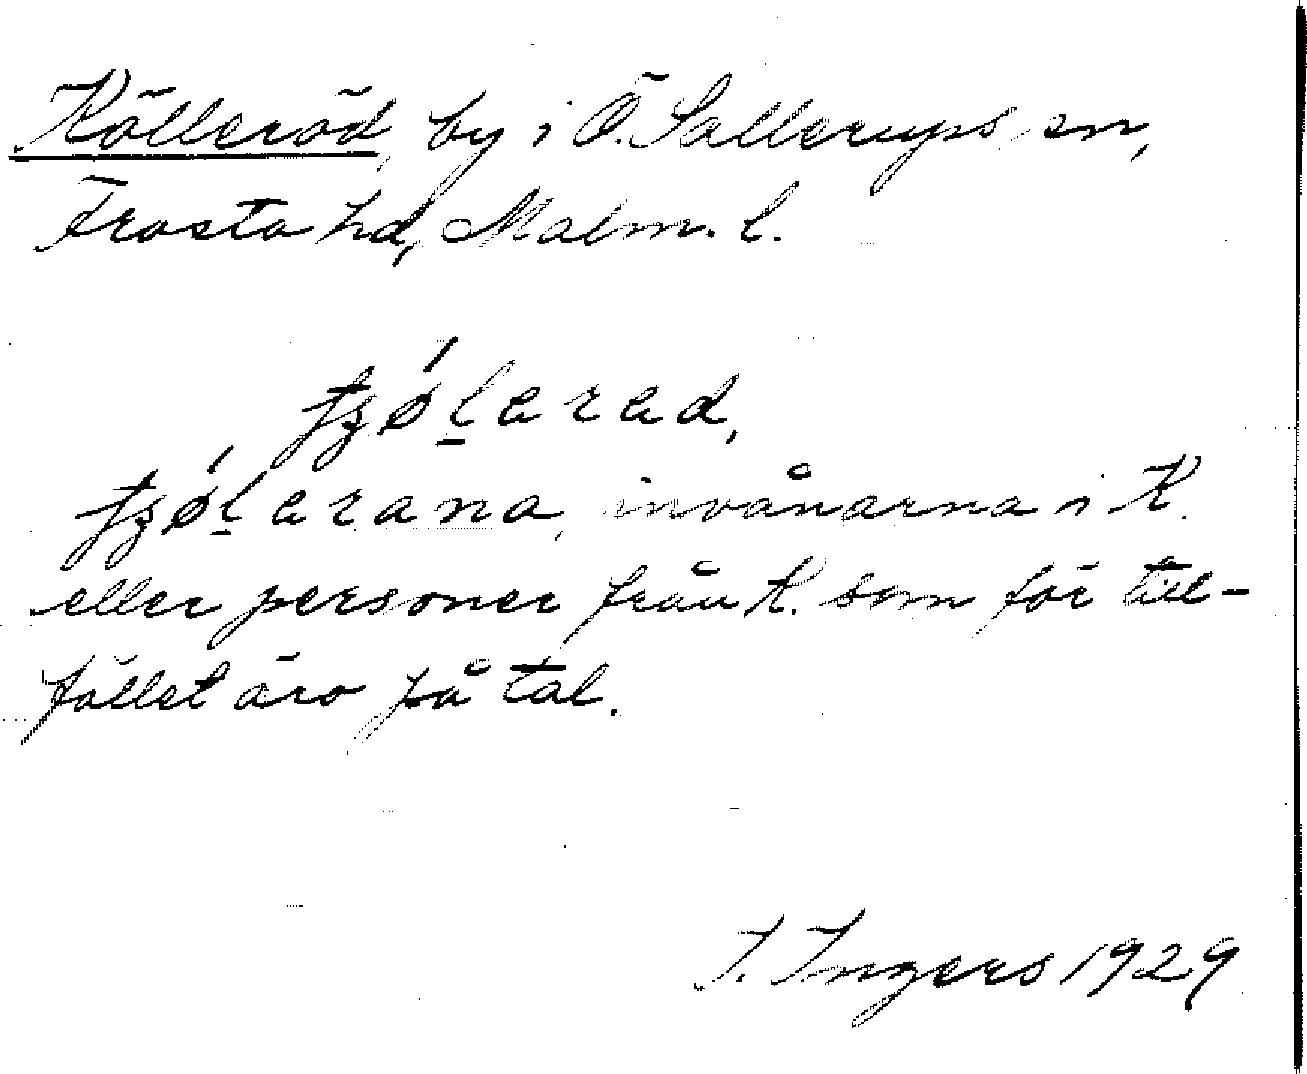 Kölleröd, by i Ö. Sallerups sn,
Frosta hd, Malm. l.
tʒǿḻerad,
tʒǿḻarana, invånarna i K.
eller personer från K. som för till-
fället äro på tal.
I. Ingers 1929